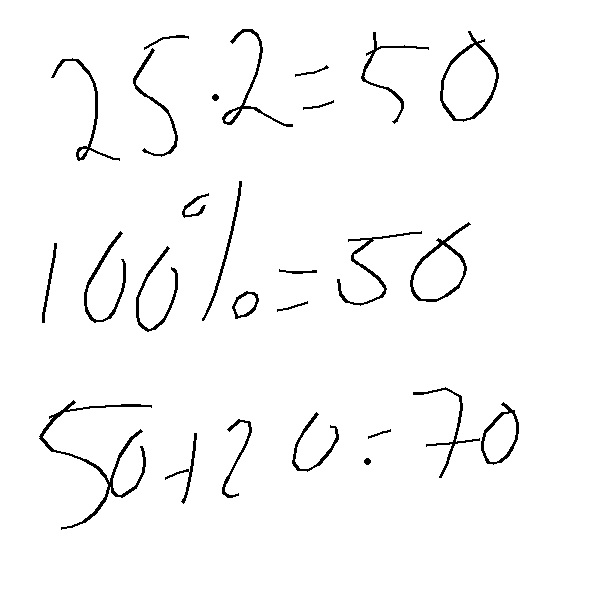 25·2=50
100%=50
50+20=70